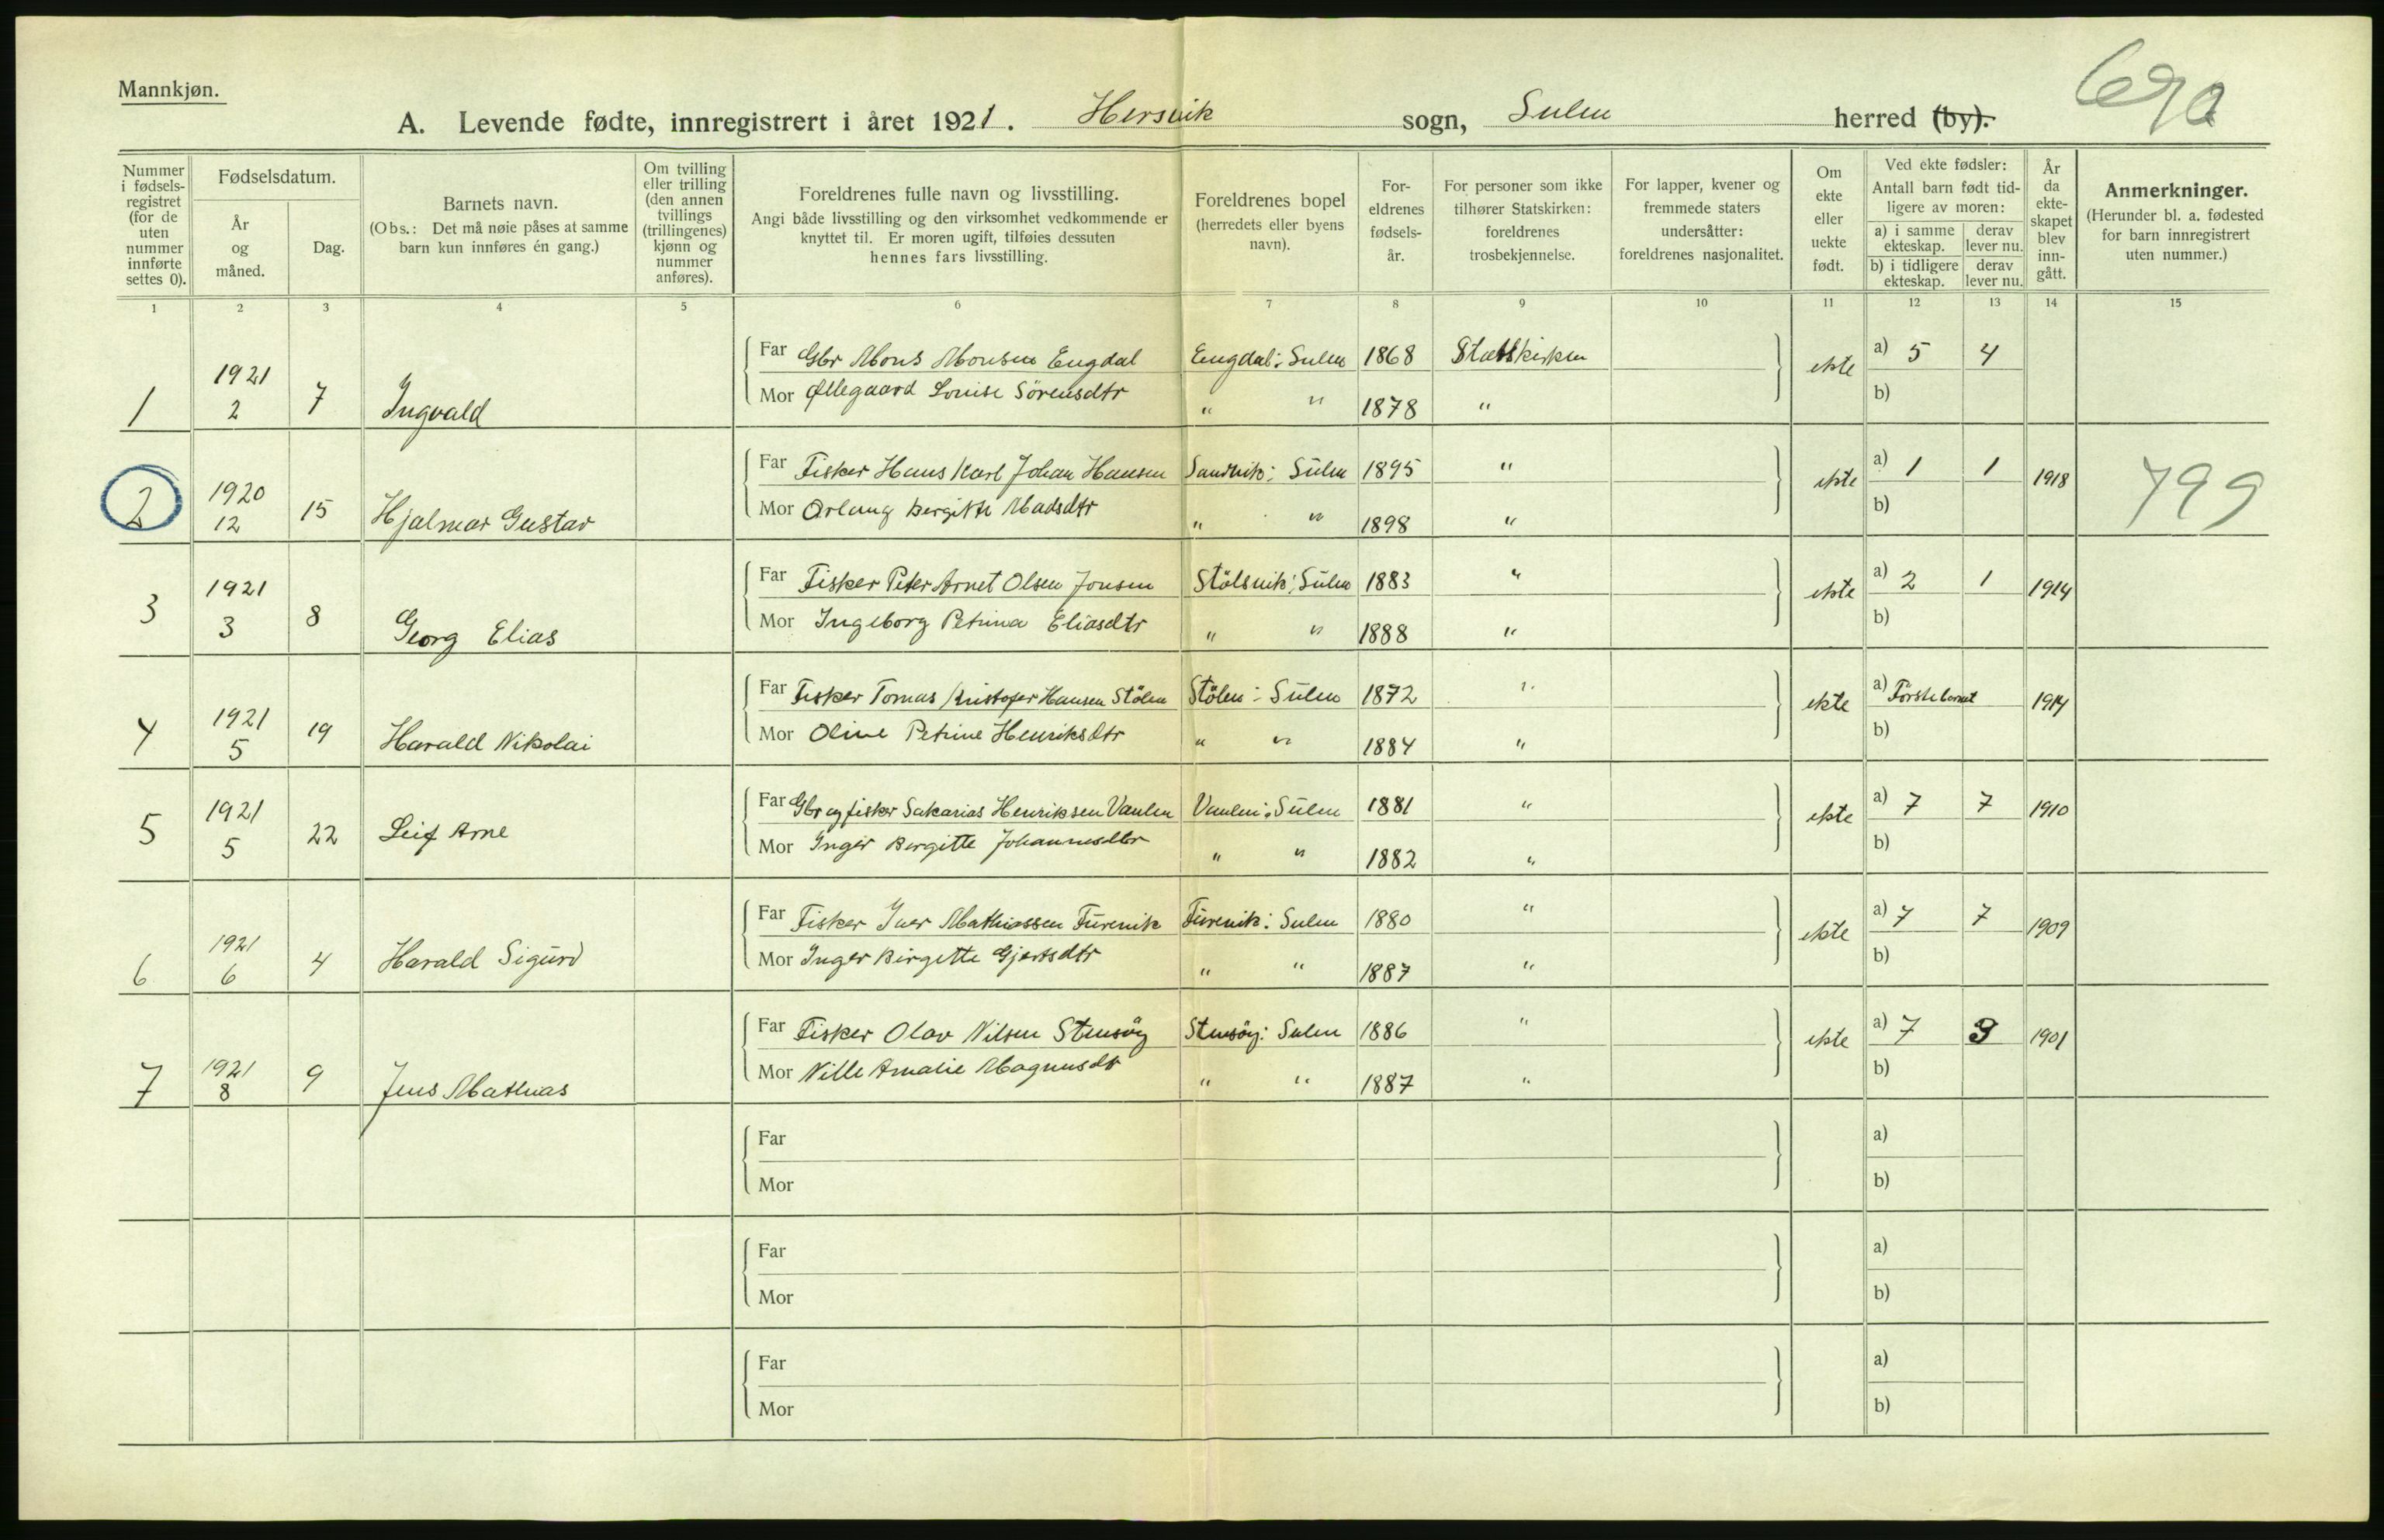 Mannkjøn.
69a
A. Levende fødte, innregistrert i året 1921. Hersvik sogn, Sulen herred (by).
Nummer i fødsels-registret (for de uten nummer innførte settes 0).
Fødselsdatum.
År og måned.
Dag.
Barnets navn.
(Obs.: Det må nøie påses at samme barn kun innføres én gang.)
Om tvilling eller trilling (den annen tvillings (trillingenes) kjønn og nummer anføres).
Foreldrenes fulle navn og livsstilling.
Angi både livsstilling og den virksomhet vedkommende er knyttet til. Er moren ugift, tilføies dessuten hennes fars livsstilling.
Foreldrenes bopel (herredets eller byens navn).
For-eldrenes fødsels-år.
For personer som ikke tilhører Statskirken: foreldrenes trosbekjennelse.
For lapper, kvener og fremmede staters undersåtter: foreldrenes nasjonalitet.
Om ekte eller uekte født.
Ved ekte fødsler:
Antall barn født tid-ligere av moren:
a) i samme ekteskap. derav lever nu.
b) i tidligere ekteskap. derav lever nu.
År da ekte-skapet blev inn-gått.
Anmerkninger.
(Herunder bl. a. fødested for barn innregistrert uten nummer.)
1 2 3 4 5 6 7 8 9 10 11 12 13 14 15
1 1921 2 7 Ingvald
Far Gbr Mons Monsen Engdal Engdal: Sulen 1868 Statskirken ekte a) 5 4
Mor Øllegaard Lovise Sörensdtr " " 1878 " b)
2 1920 12 15 Hjalmar Gustav
Far Fisker Hans Karl Johan Hansen Sandvik: Sulen 1895 " ekte a) 1 1 1918 799
Mor Orlaug Bergitte Madsdtr " " 1898 " b)
3 1921 3 8 Georg Elias
Far Fisker Peter Arnet Olsen Jonsen Stölsvik: Sulen 1883 " ekte a) 2 1 1914
Mor Ingeborg Petrina Eliasdtr " " 1888 " b)
4 1921 5 19 Harald Nikolai
Far Fisker Tomas Kristofer Hansen Stölen Stölen: Sulen 1872 " ekte a) Förstebarnet 1914
Mor Oline Petrine Henriksdtr " " 1884 " b)
5 1921 5 22 Leif Arne
Far Gbr og fisker Sakarias Henriksen Vaulen Vaulen: Sulen 1881 " ekte a) 7 7 1910
Mor Inger Bergitte Johannesdtr " " 1882 " b)
6 1921 6 4 Harald Sigurd
Far Fisker Iver Mathiassen Furevik Furevik: Sulen 1880 " ekte a) 7 7 1909
Mor Inger Birgitte Gjertsdtr " " 1887 " b)
7 1921 8 9 Jens Mathias
Far Fisker Olav Nilsen Stensöy Stensöy: Sulen 1886 " ekte a) 7 1901
Mor Nille Amalie Magnusdtr " " 1887 " b)
Far a)
Mor b)
Far a)
Mor b)
Far a)
Mor b)